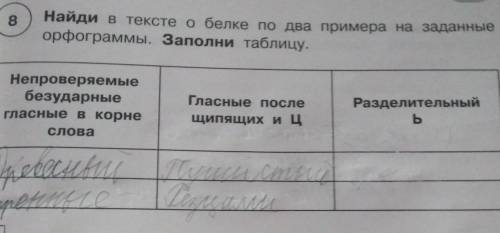 8 Найди в тексте о белке по два примера на заданные
орфограммы. Заполни таблицу.
Непроверяемые
безударные
гласные в корне
слова
Гласные после
щипящих и Ц
Разделительный
Ь
Пушистый